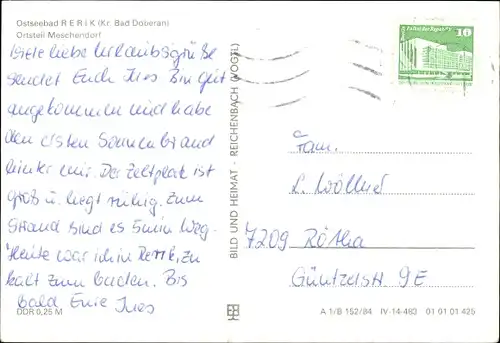 Ostseebad R E R I K (Kr. Bad Doberan)
Ortsteil Meschendorf
liebe Urlaubsgrüße
sendet Euch Ines Bin gut
angekommen und habe
den ersten Sonnenbrand
hinter mir. Der Zeltplatz ist
groß u. liegt ruhig. Zum
Strand sind es 5 min Weg.
Heute war ich in Rerik, zu
kalt zum baden. Bis
bald Eure Ines
DDR 0,25 M
BILD UND HEIMAT - REICHENBACH (VOGTL)
10
Fam.
L. Wöllner
7209 Rötha
Güntzelstr. 9E
A 1/B 152/84 IV-14-483 01 01 01 425